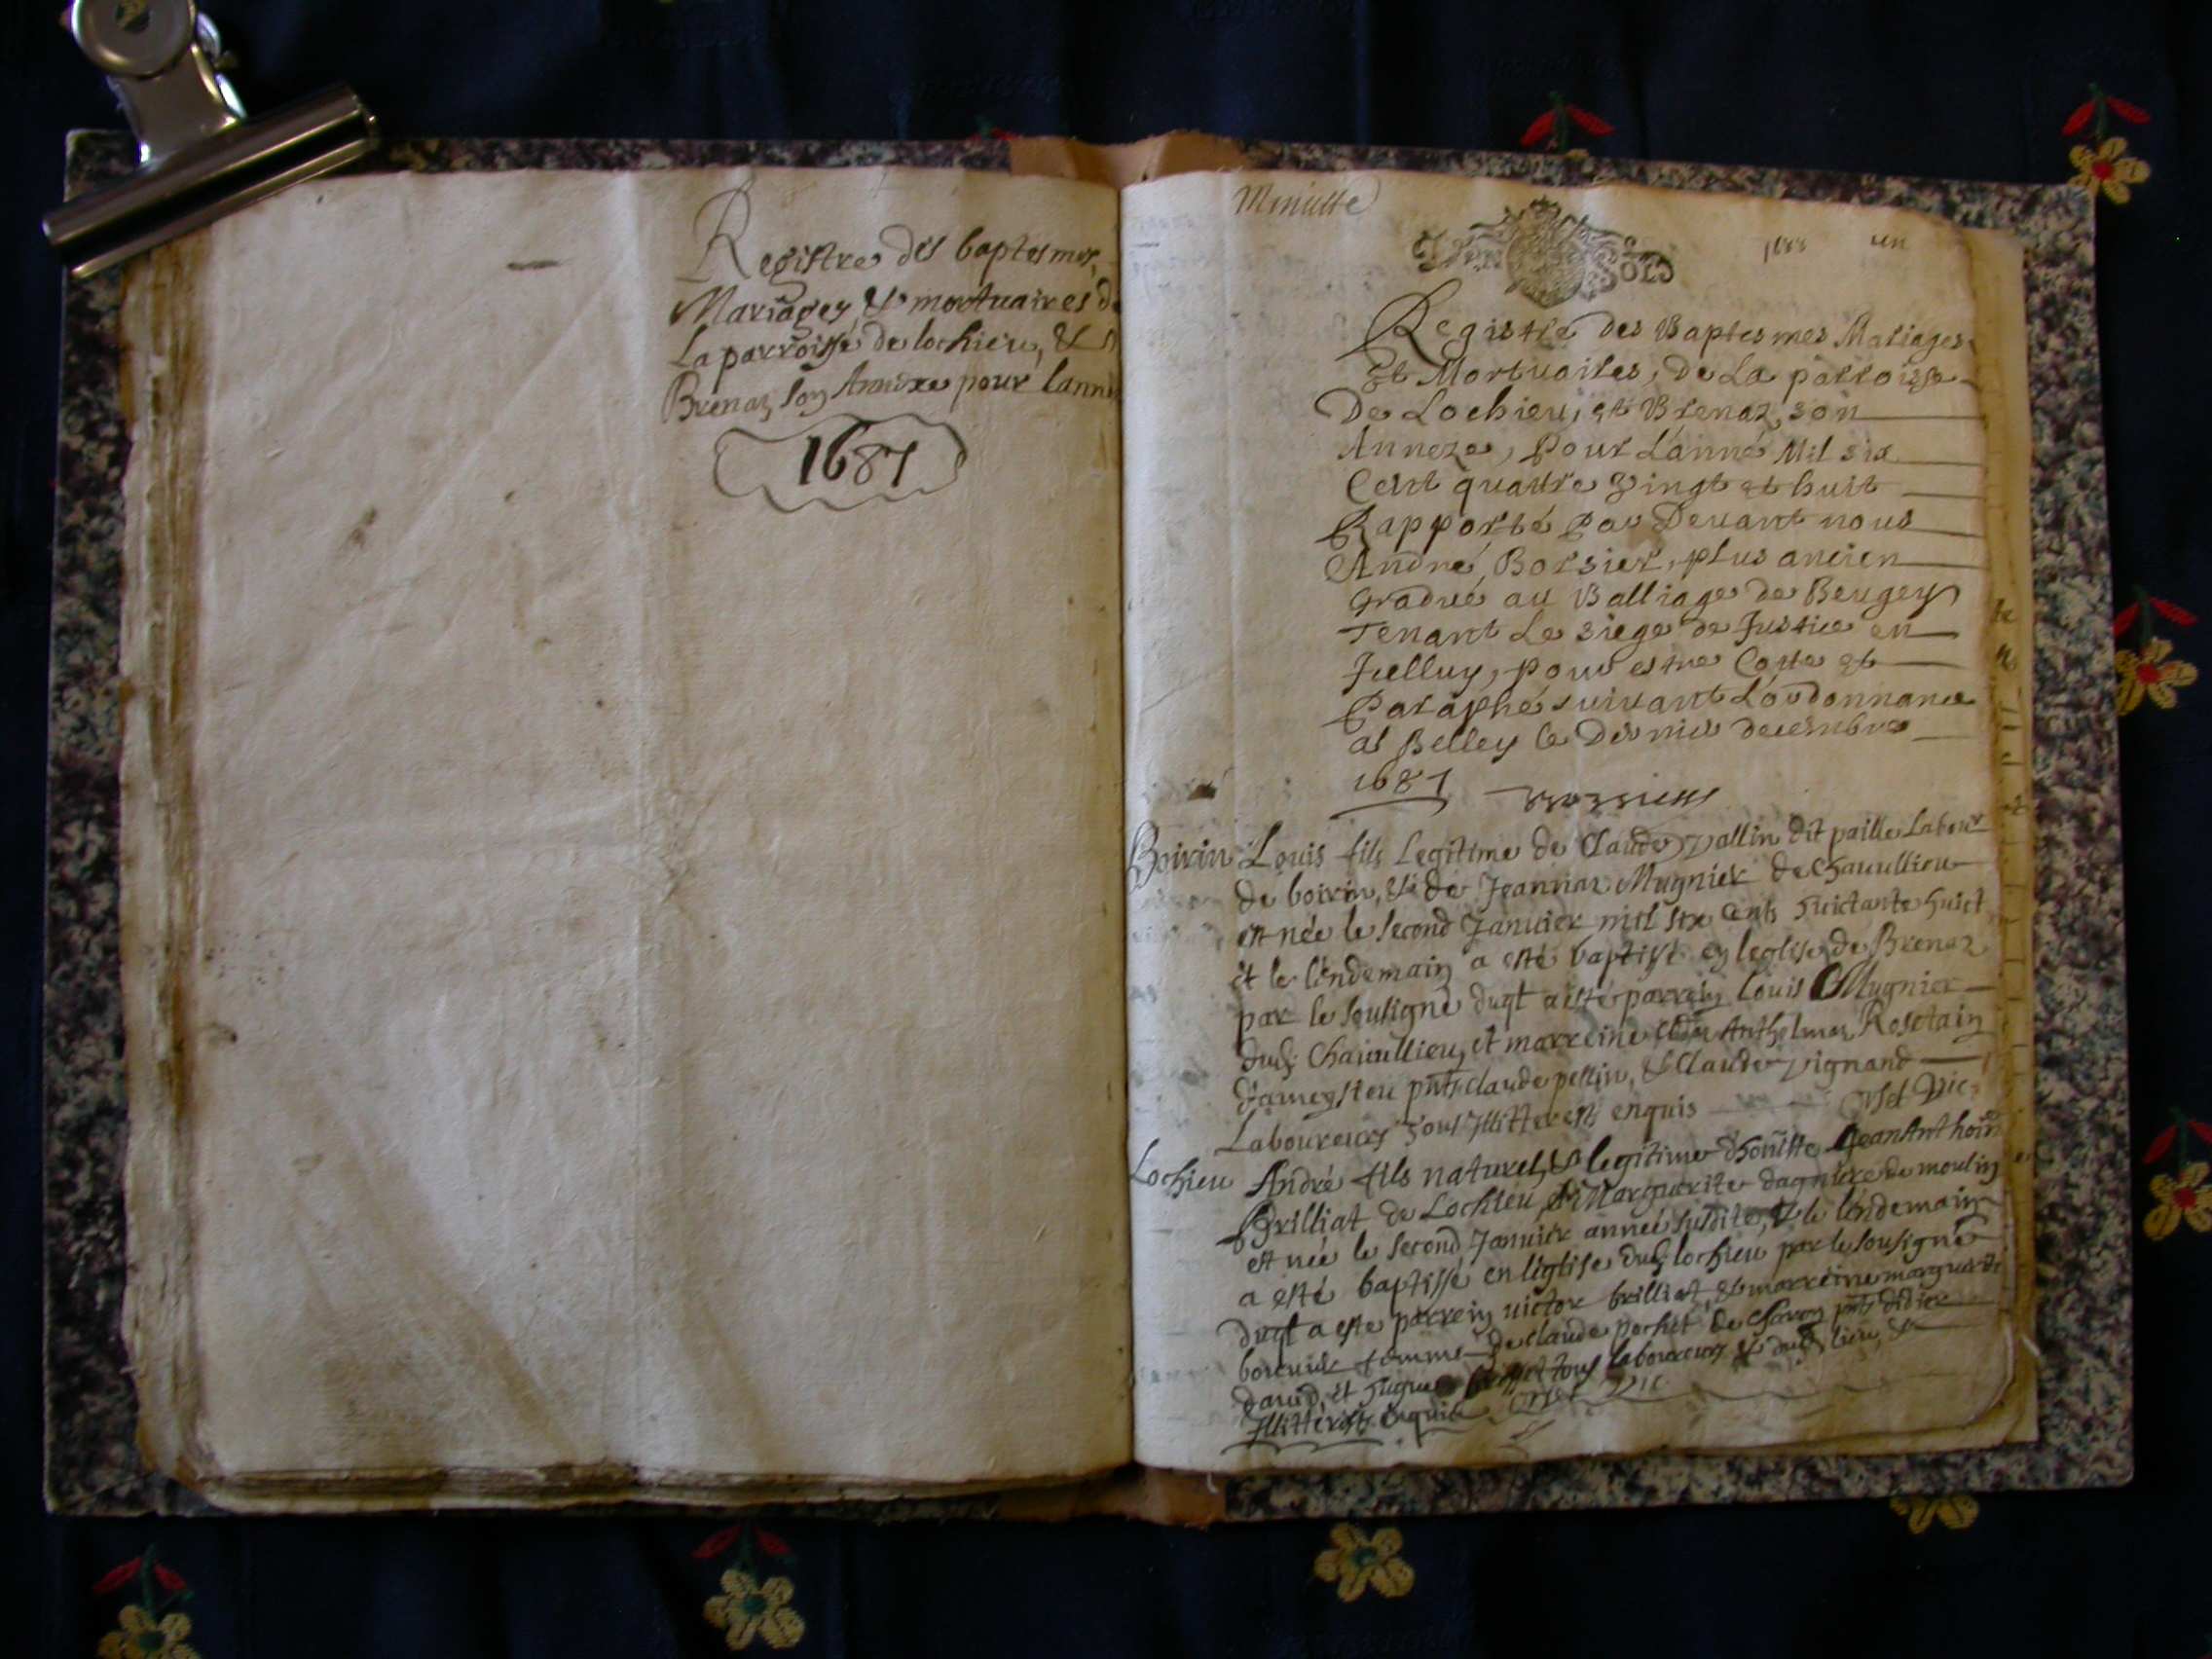 Registre des baptesmes,
Mariages & mortuaires de
La parroisse de lochieu, &
Brenaz son Annexe pour lann
1687
Minutte
1688 un
Registre des Baptesmes Mariages
Et Mortuaires, de La parroisse
De Lochieu, et Brenaz son
Annexe, Pour L'anné Mil six
Cent quattre vingt et huit
Rapporté Par Devant nous
André Borsier, plus ancien
Gradué au Balliage de Beugey
Tenant Le siege de Justice en
Jcelluy, pour estre Cotte et
Paraphé suivant Lordonnance
a Belley le Dernier decembre
1687
Boirin Louis fils Legitime de Claude Vallin dit paille Labour
de boirin, & de Jeannaz Mugnier de Chavillieu
est née le second Janvier mil six cents huictante huict
et le lendemain a esté baptisé en leglise de Brenaz
par le sousigné duqt a esté parrein Louis Mugnier
dud. Chavillieu, et marreine Anthelmaz Rosetain
d'ameysieu pnts claude pellin, & Claude vignand
Laboureurs tous Illitterés enquis
Lochieu André fils naturel & legitime d'honeste Jean Anthoine
Brilliat de Lochieu & Marguerite dagniere de moulin
est née le second Janvier année susdite, & le lendemain
a esté baptissé en l'eglise dud. lochieu par le sousigné
duqt a este parrein victor brilliat, & marreine marguerite
femme de claude pochet de pnts didier
david, et tous laboureurs dud. lieu, &
Illitterés enquis